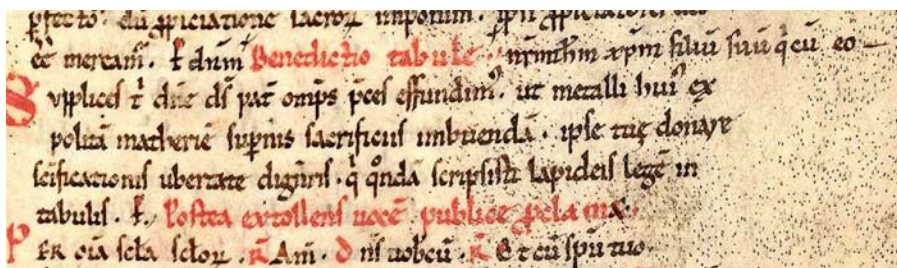 pfecto. dũ ꝓpiciatione sacroꝝ imponim.
eē meream᷑. ꝑ dnm̄ Benedictio tabule nr̄m ihm xp̄m filiũ suũ q̇ cũ eo
Supplices t̄ dn̄e ds̄ pat̄ omps p̄ces effundim᷒. ut metalli hui᷒ ex
politā matherie sup̄nis sacrificiis imbuendā. ipse tuę donare
sc̄ificationis ubertate digneris. q̇ q̊ndā scripsisti lapideis legē in
tabulis. ꝑ. Postea extollens uocē publice ꝓclamax.
PER oīa scl̄a scl̄oꝝ. ꝶ Am̄. Dn̄s uobcũ. ꝶ Et cũ spũ tuo.